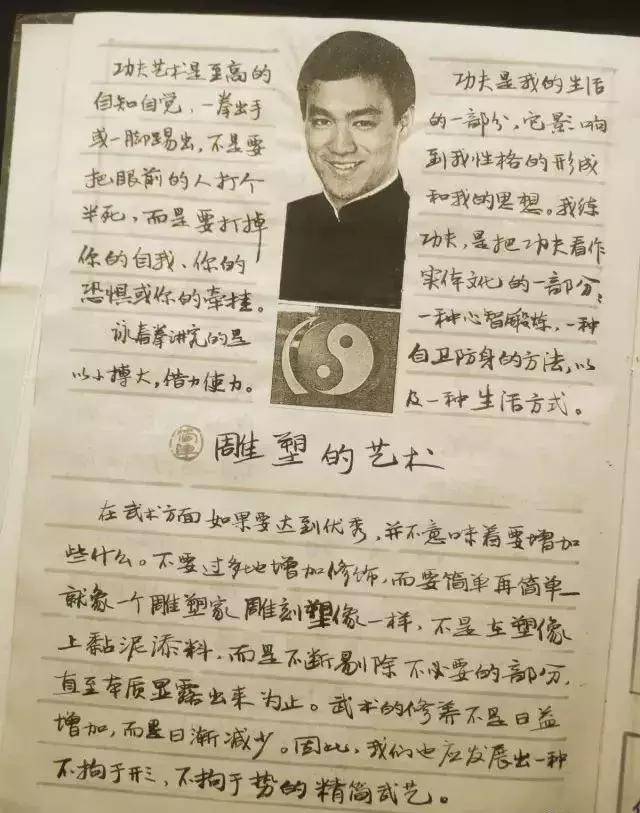 功夫艺术是至高的
自知自觉，一拳出手
或一脚踢出，不是要
把眼前的人打个
半死，而是要打掉
你的自我、你的
恐惧或你的牵挂。
咏春拳讲究的是
以小搏大，借力使力。
功夫是我的生活
的一部分，它影响
到我性格的形成
和我的思想。我练
功夫，是把功夫看作
实体文化的一部分；
一种心智锻炼，一种
自卫防身的方法，以
及一种生活方式。
雕塑的艺术
在武术方面如果要达到优秀，并不意味着要增加
些什么。不要过多地增加修饰，而要简单再简单—
就象一个雕塑家雕刻塑像一样，不是在塑像
上黏泥添料，而是不断剔除不必要的部分，
直至本质显露出来为止。武术的修养不是日益
增加，而是日渐减少。因此，我们也应发展出一种
不拘于形，不拘于势的精简武艺。